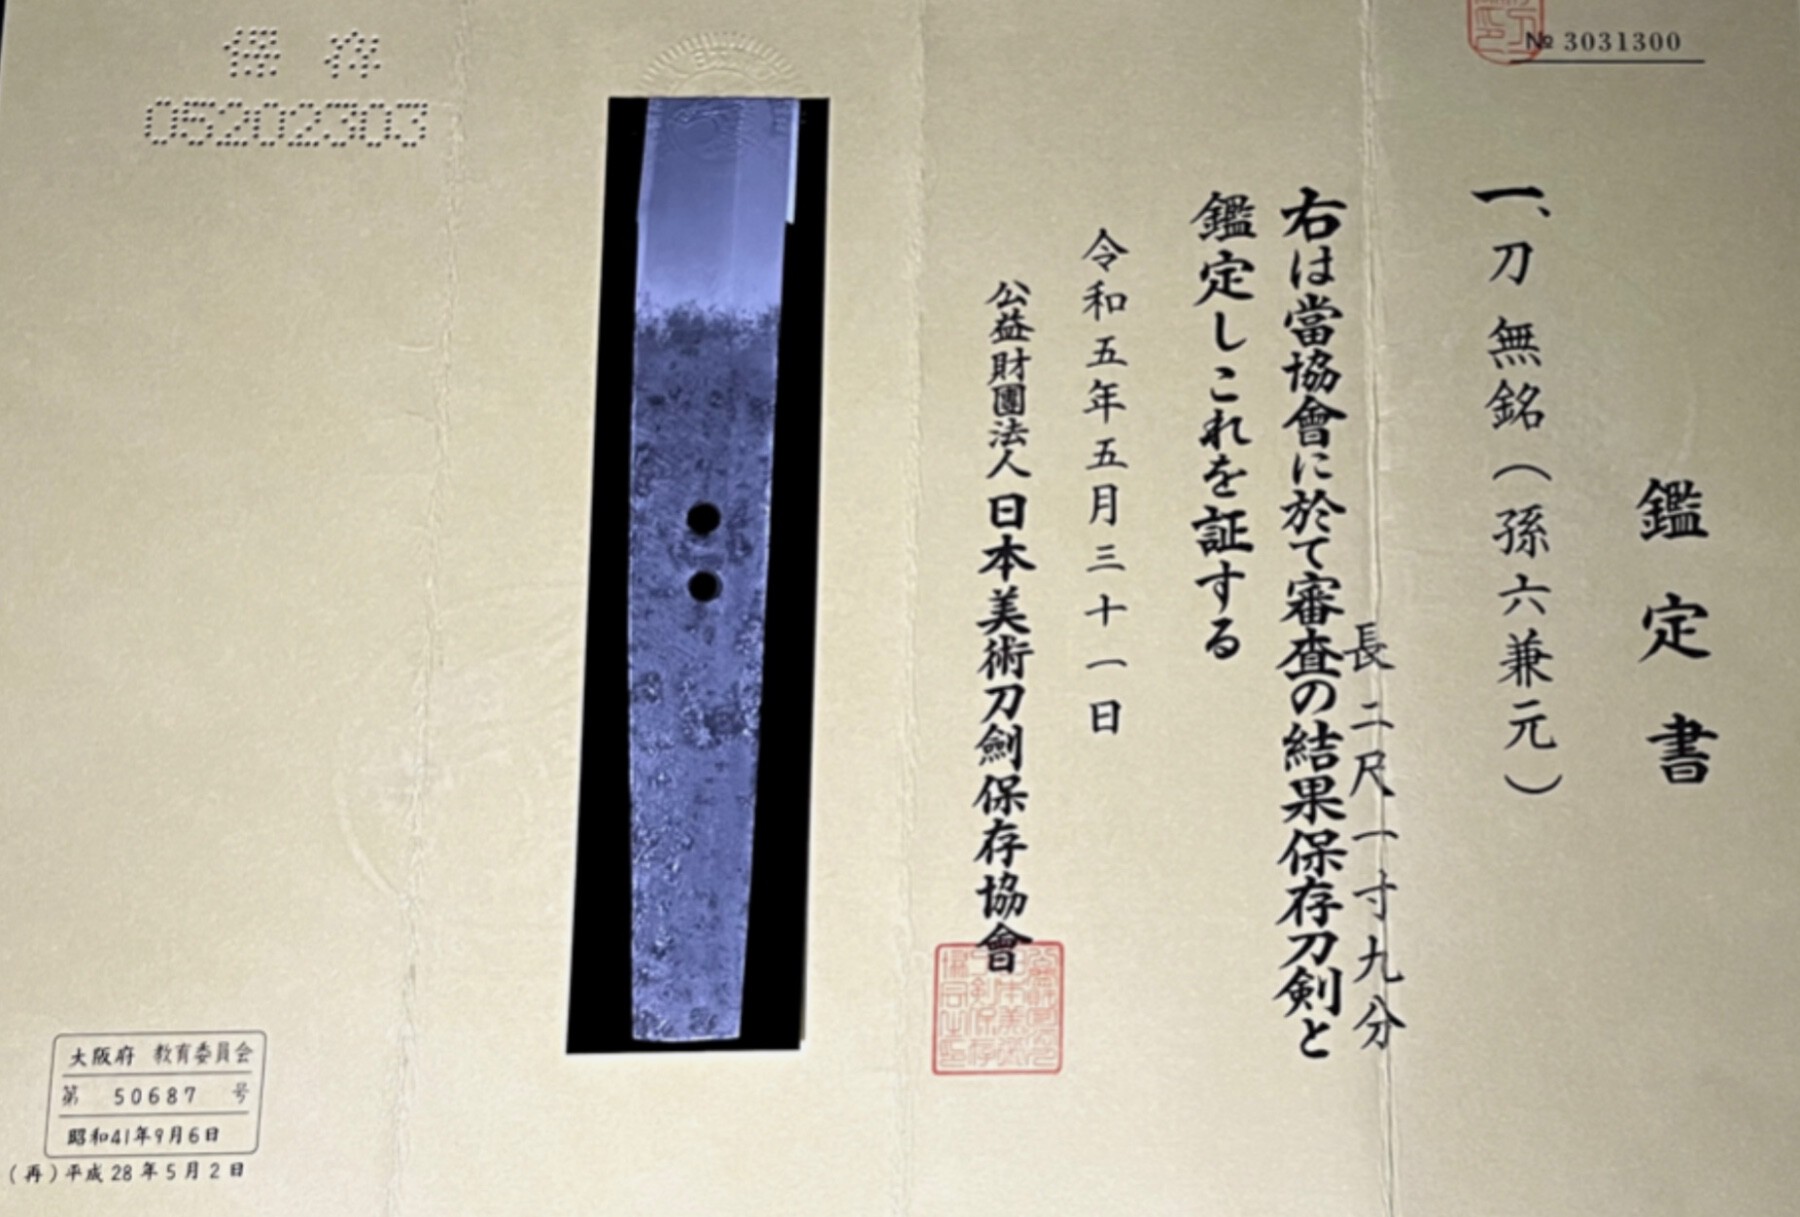 鑑定書
一、刀 無銘(孫六兼元)
長二尺一寸九分
右は當協會に於て審査の結果保存刀剣と
鑑定しこれを証する
令和五年五月三十一日
公益財團法人日本美術刀劍保存協會
№ 3031300
保存
05202303
大阪府 教育委員会
第 50687 号
昭和41年9月6日
(再)平成28年5月2日